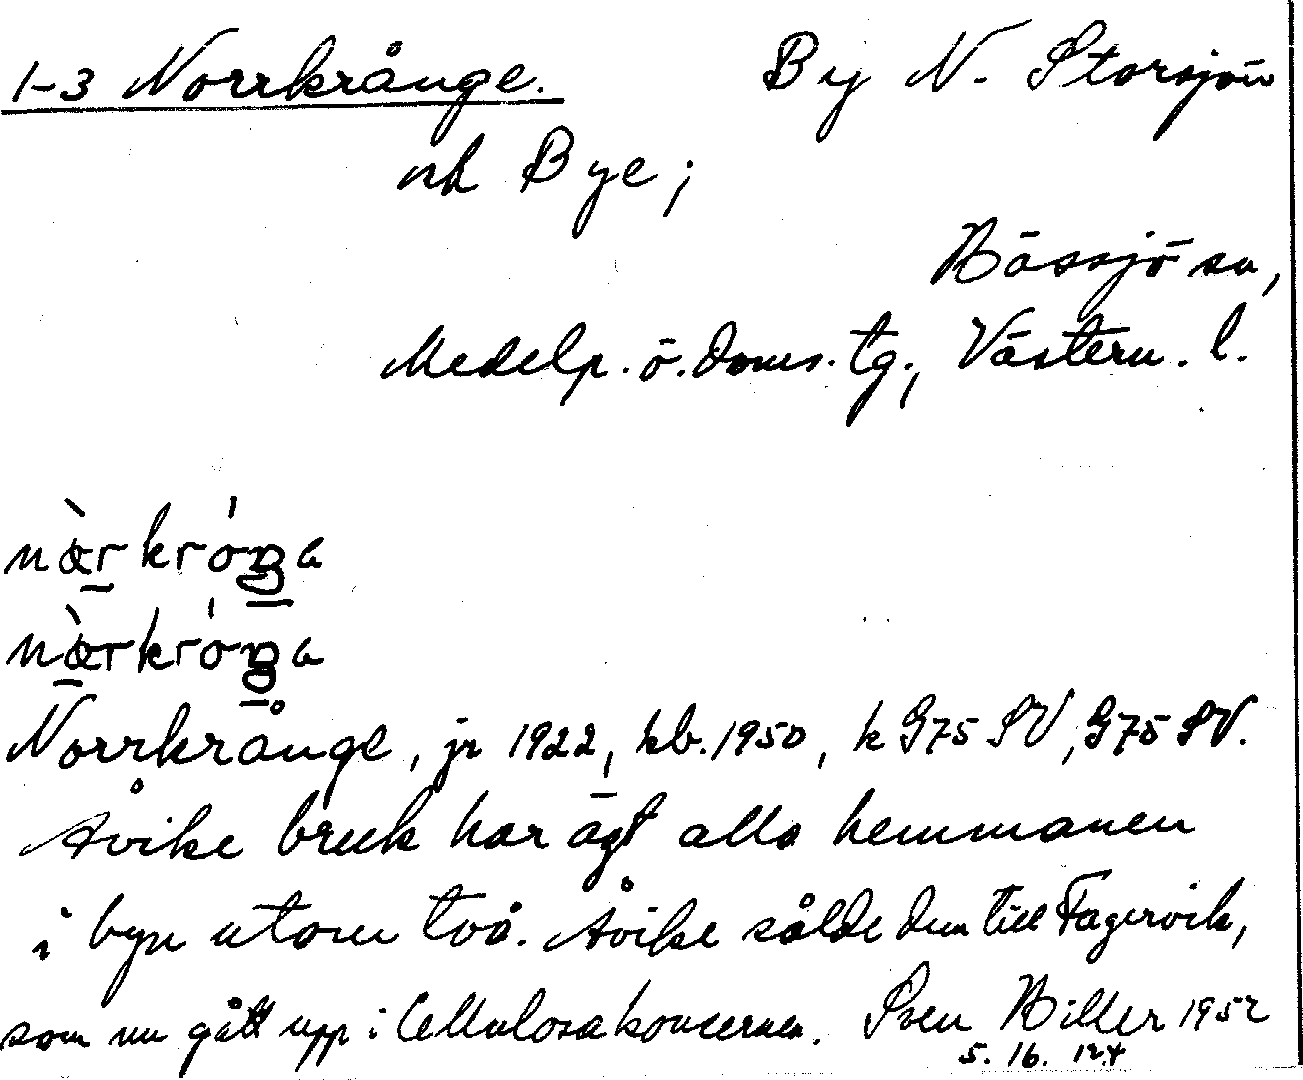 1-3 Norrkrånge. By N. Storsjön
nb Bye;
Hässjö sn,
Medelp. ö. doms. tg., Västern. l.
nàrkróŋa
nàrkróŋa
Norrkrånge, jr 1922, kb. 1950, k G75 SV, G75 SV.
Åvike bruk har ägt alla hemmanen
i byn utom två. Åvike sålde dem till Fagervik,
som nu gått upp i Cellulosakoncernen. Sven 1952
5. 16. 124